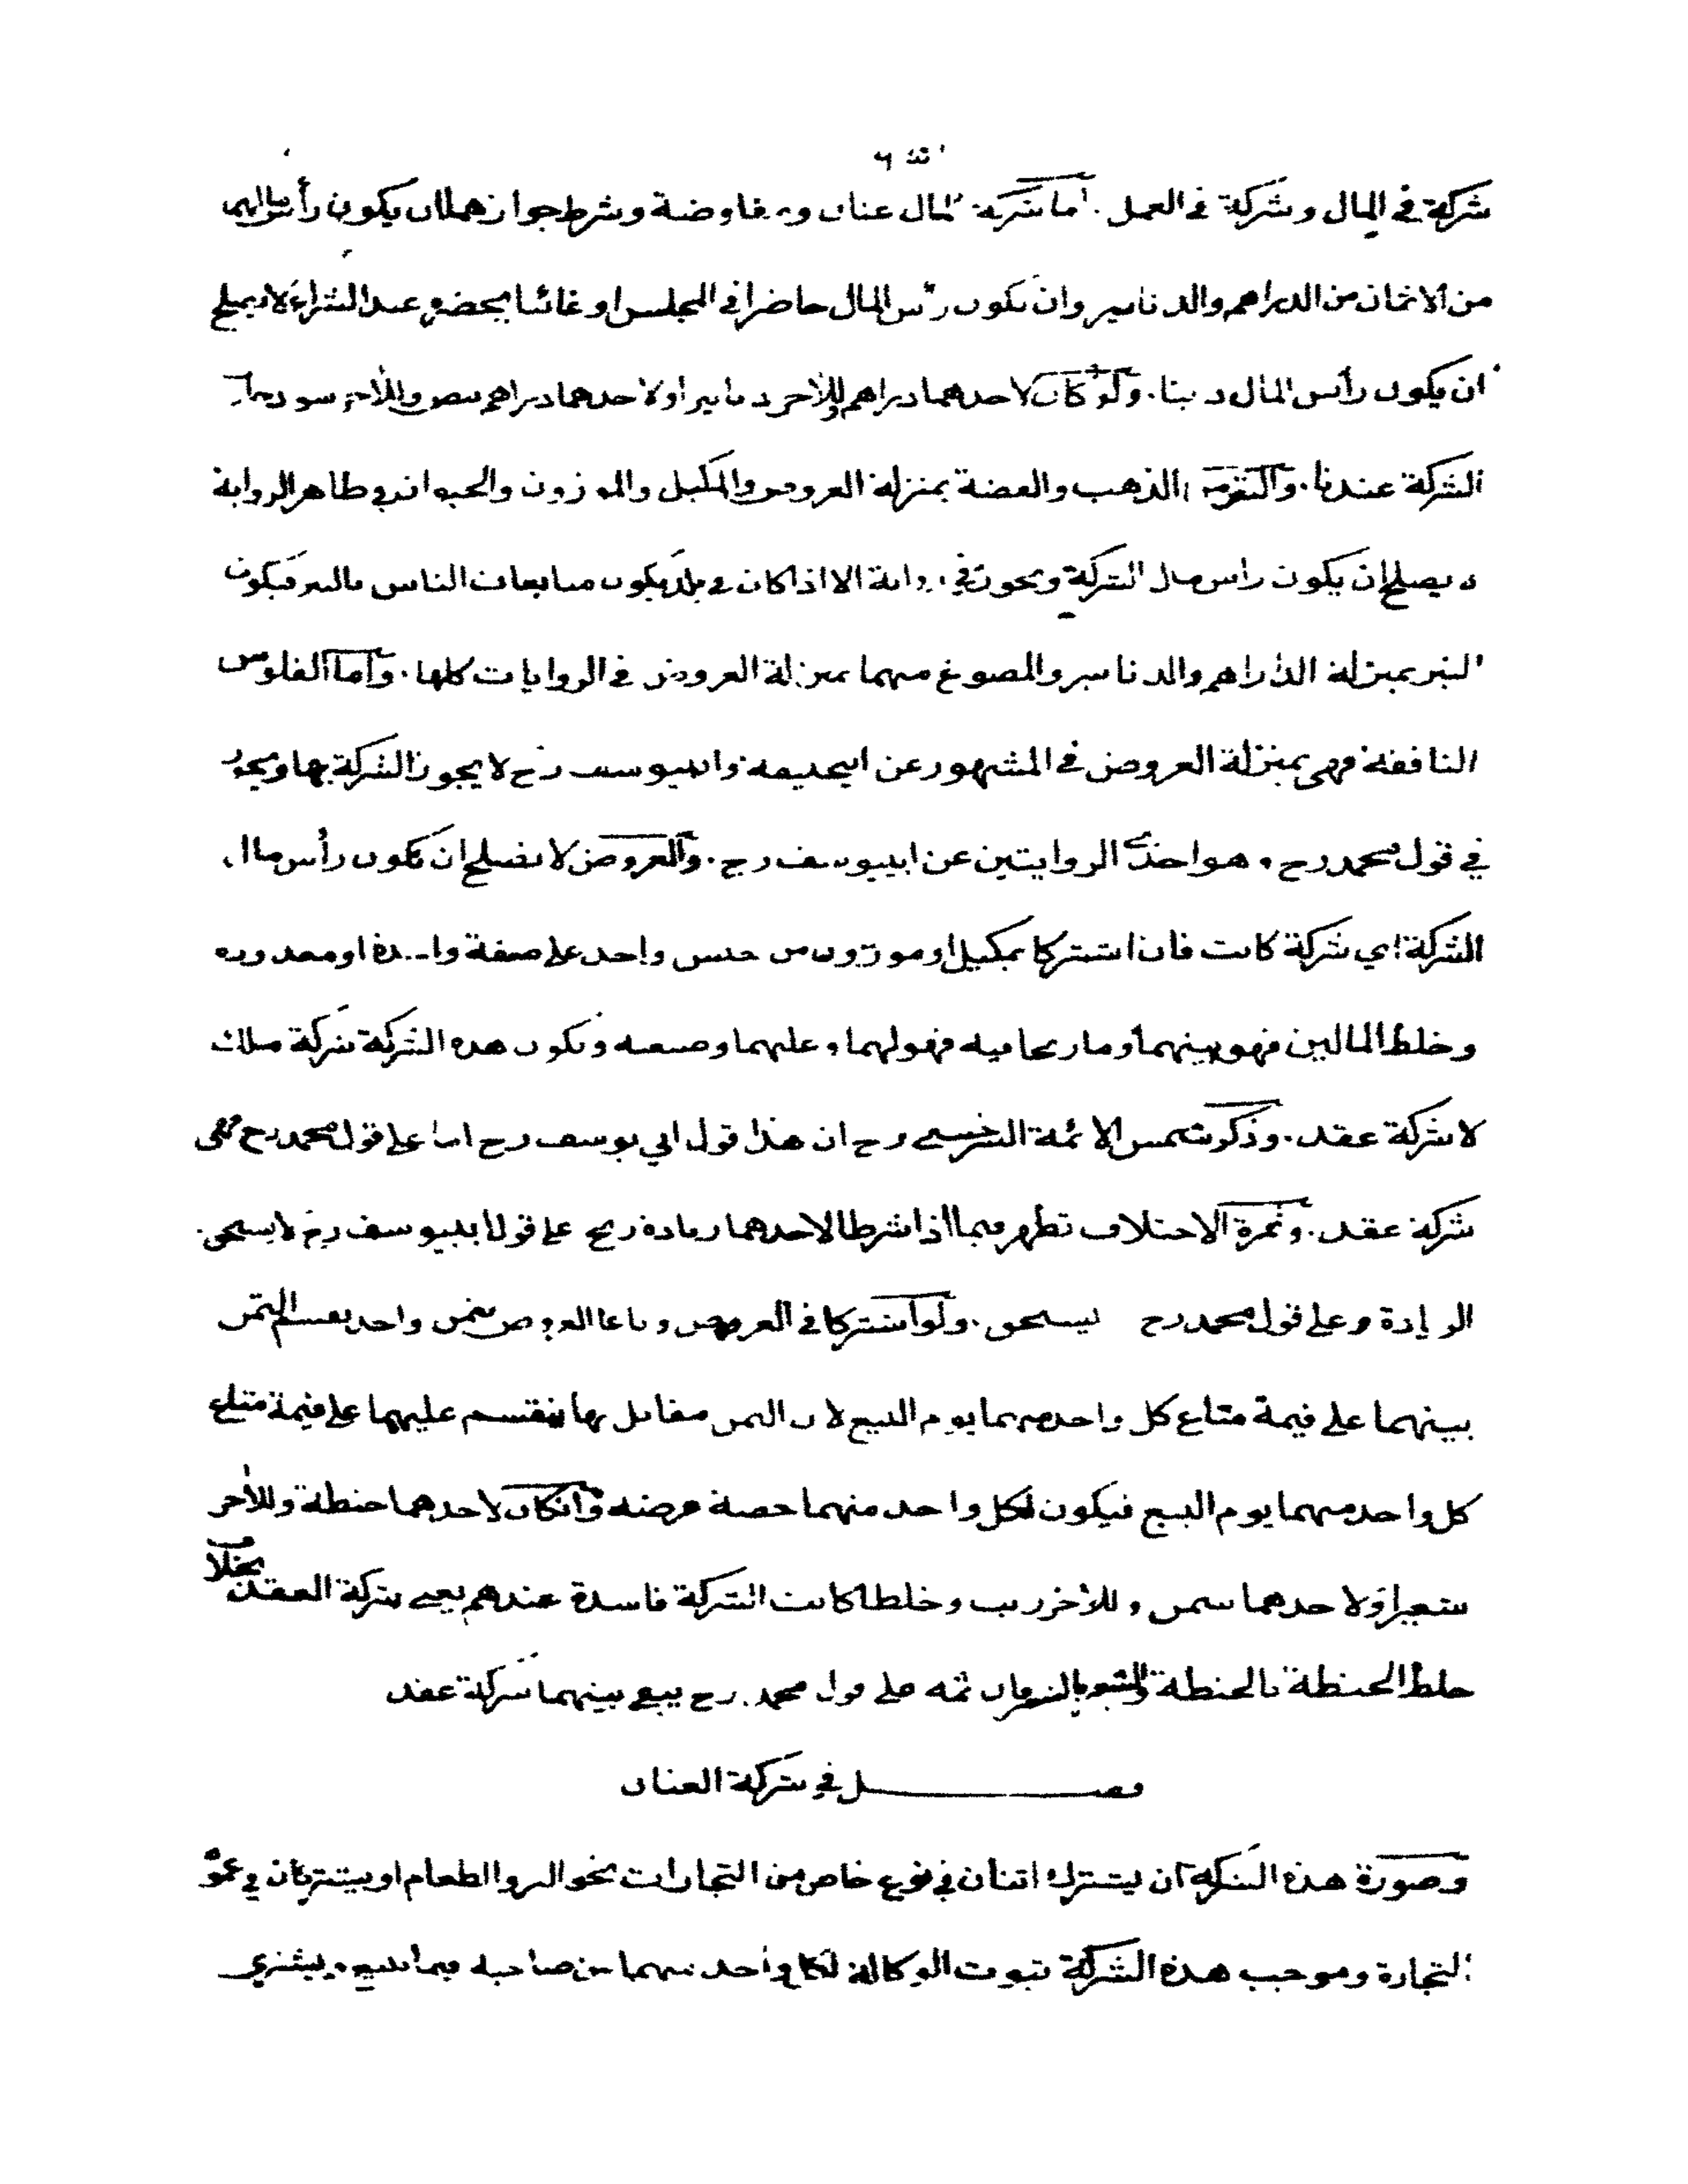 شركة في المال وشركة في العمل . اما شركة المال عنان ومفاوضة وشرط جوازهما ان يكون رأس مالهما
من الاثمان من الدراهم والدنانير وان يكون رأس المال حاضرا في المجلس او غائبا يحضر عند الشراء لا يصلح
ان يكون رأس المال دينا . ولو كان لاحدهما دراهم وللآخر دنانير او لاحدهما دراهم بيض وللآخر سود جازت
الشركة عندنا . والنقرة الذهب والفضة بمنزلة العروض والمكيل والموزون والحيوان في ظاهر الرواية
لا يصلح ان يكون راس مال الشركة ويجوز في رواية الا اذا كان في بلد يكون مبايعات الناس بالتبر فيكون
التبر بمنزلة الدراهم والدنانير والمصوغ منهما بمنزلة العروض في الروايات كلها . واما الفلوس
النافقة فهي بمنزلة العروض في المشهور عن ابيحنيفة وابييوسف رح لا يجوز الشركة بها ويجوز
في قول محمد رح وهو احدى الروايتين عن ابييوسف رح . والعروض لا تصلح ان تكون رأس مال
الشركة اي شركة كانت فان اشتركا بمكيل او موزون من جنس واحد على صفة واحدة او معدود به
وخلط المالين فهو بينهما وما ربحا فيه فهو لهما وعليهما وضيعته وتكون هذه الشركة شركة ملك
لا شركة عقد . وذكر شمس الائمة السرخسي رح ان هذا قول ابي يوسف رح اما على قول محمد رح فهي
شركة عقد . وثمرة الاختلاف تظهر فيما اذا شرطا لاحدهما زيادة ربح على قول ابييوسف رح لا يستحق
الزيادة وعلى قول محمد رح يستحق . ولو اشتركا في العروض وباعا العروض بثمن واحد يقسم الثمن
بينهما على قيمة متاع كل واحد منهما يوم البيع لان الثمن مقابل بها فينقسم عليهما على قيمة متاع
كل واحد منهما يوم البيع فيكون لكل واحد منهما حصة عرضه وان كان لاحدهما حنطة وللآخر
شعير او لاحدهما سمن وللآخر زيت وخلطا كانت الشركة فاسدة عندهم يعني شركة العقد بخلاف
خلط الحنطة بالحنطة والشعير بالشعير فان ثمه على قول محمد رح يبقى بينهما شركة عقد
فصــل في شركة العنان
وصورة هذه الشركة ان يشترك اثنان في نوع خاص من التجارات نحو البر والطعام او يشتركان في عموم
التجارة وموجب هذه الشركة ثبوت الوكالة لكل واحد منهما من صاحبه فيما يبيع ويشتري